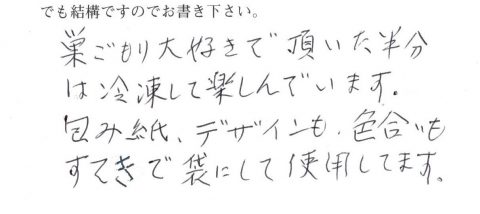 でも結構ですのでお書き下さい。
巣ごもり大好きで頂いた半分
は冷凍して楽しんでいます。
包み紙、デザインも、色合いも
すてきで袋にして使用してます。